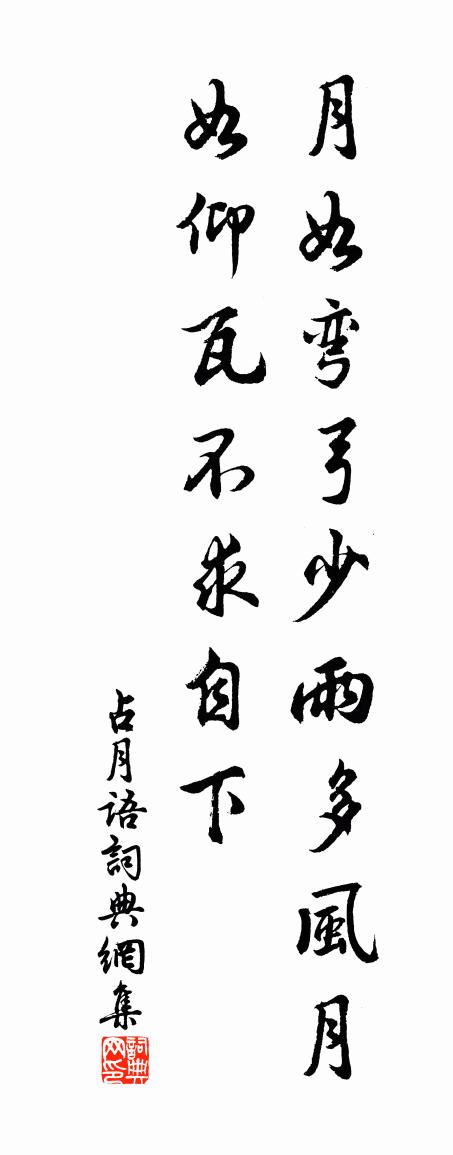 月如弯弓少雨多風月
如仰瓦不求自下
占月语詞典網集
詞典网印